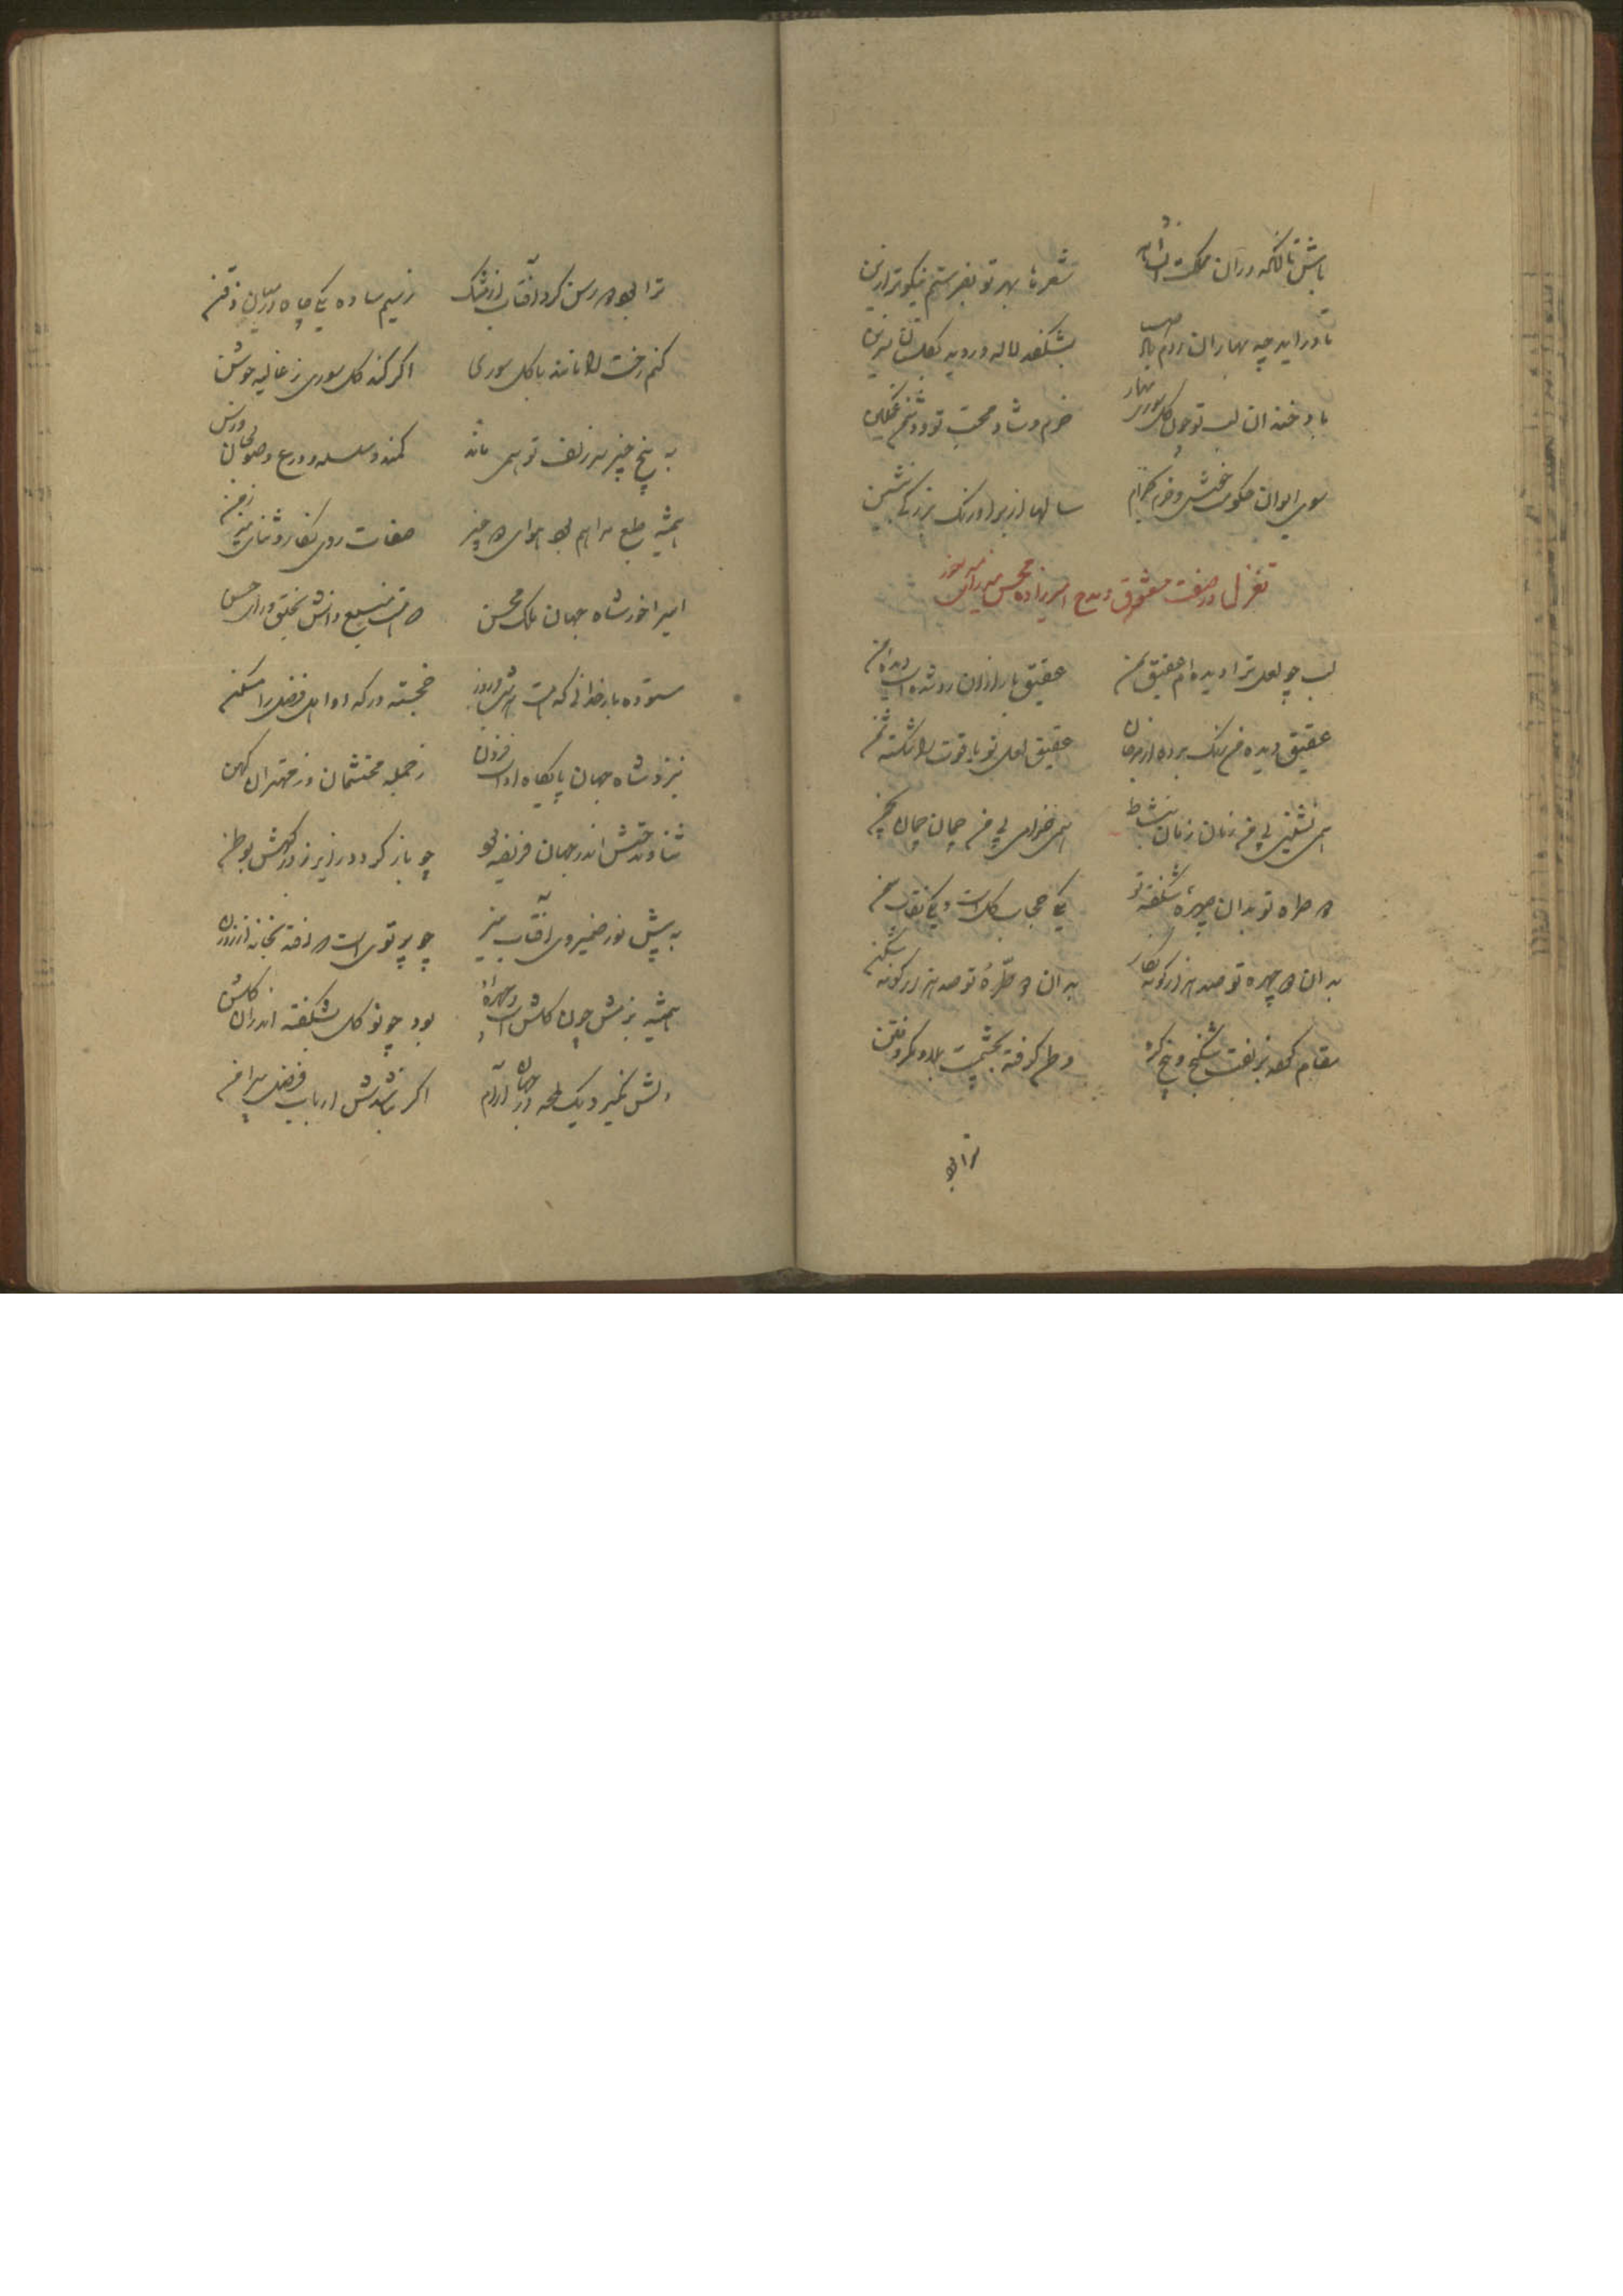 باش تا آنکه در آن مملکت شعرها بهر تو بفرستم نیکوتر ازین
تا درآید چه بهاران بشکفد لاله و روید بگلستان نسرین
باد خندان لب تو چون گل سوری بهار خرم و شاد محبّ تو و دشمن غمگین
سوی ایوان حکومت خوش و خرم بخرام سالها از بر اورنگ بزرگی بنشین
تغزل در صفت معشوق و مدح امیرزاده محسن میرزا
لب چو لعل ترا دیده ام عقیق یمن عقیق بارانزان رو شده است دیده من
عقیق دیده من رنگ برده از مرجان عقیق لعل تو یاقوت را شکسته ثمن
همی نشینی بی من زمان زمان بنشاط همی خرامی بی من چمان چمان بچمن
دو طره تو بدان چهره شکفته تو یکی حجاب گل است و یکی نقاب سمن
بدان دو چهره تو صد هزار گونه نگار بدان دو طرّه تو صد هزار گونه شکن
مقام کرده بزلفت شکنج و پیچ و گره وطن گرفته بچشمت بلا و مکر و فتن
ترا بود
ترا بود دو رسن گرد آفتاب از مشک ز سیم ساده یکی چاه در میان ذقن
کنم رخت را مانند با گل سوری اگر کند گل سوری ز غالیه جوشن
به پنج چیز سر زلف تو همی ماند کمند و سلسله و درع و صولجان و رسن
همیشه طبع مرا هم بود هوای دو چیز صفات روی نگار و ثنای میر زمن
امیر آخور شاه جهان ملک محسن
ستوده بار خدائی که هست خجسته درگه او اهل فضل را مسکن
بنزد شاه جهان پایگاه اوست فزون ز جمله محتشمان وز مهتران کهن
ثنا و مدحتش اندر جهان فریضه بود
به پیش نور ضمیر وی آفتاب منیر چو پرتوی است در افتد بخانه از روزن
همیشه بزمش چون گلشن است و چهره او بود چو نو گل بشکفته اندران گلشن
دلش نگیرد یک لحظه در جهان آرام اگر نباشدش ارباب فضل پیرامن